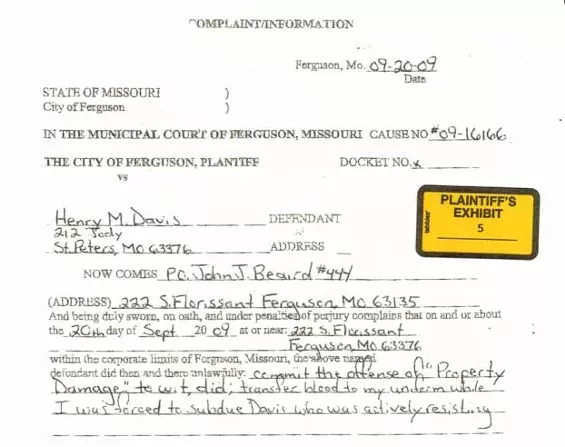 COMPLAINT/INFORMATION
Ferguson, Mo. 09-20-09
Date
STATE OF MISSOURI )
City of Ferguson )
IN THE MUNICIPAL COURT OF FERGUSON, MISSOURI CAUSE NO #09-16166
THE CITY OF FERGUSON, PLANTIFF DOCKET NO. x
VS
PLAINTIFF'S
EXHIBIT
5
tabbies
Henry M. Davis DEFENDANT
212 Jody
St. Peters, MO 63376 ADDRESS
NOW COMES P.O. John J. Beaird #444
(ADDRESS) 222 S. Florissant Ferguson, MO 63135
And being duly sworn, on oath, and under penalties of perjury complains that on and or about
the 20th day of Sept 20 09 at or near: 222 S. Florissant
Ferguson, MO 63376
within the corporate limits of Ferguson, Missouri, the above named
defendant did then and there unlawfully: commit the offense of "Property
Damage" to wit, did; transfer blood to my uniform while
I was forced to subdue Davis who was actively resisting